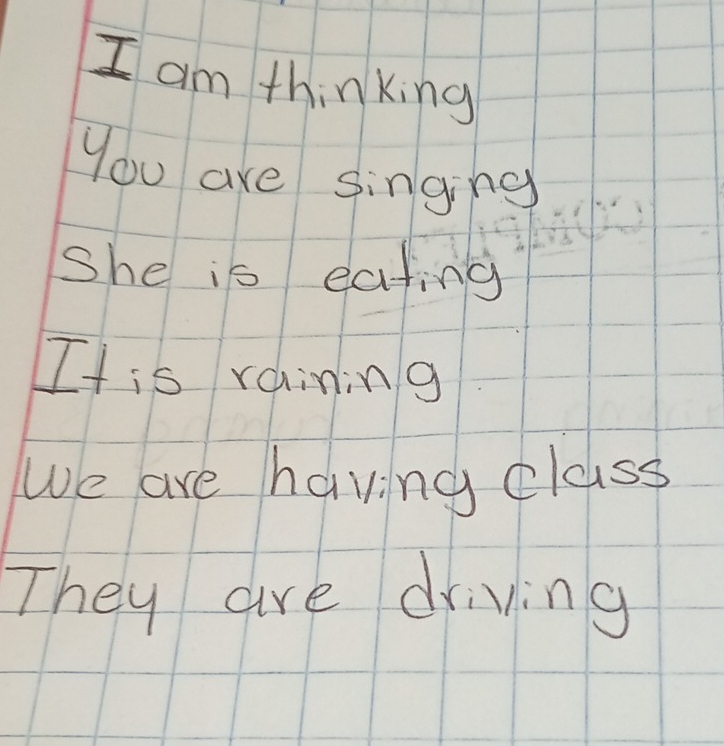 I am thinking
You are singing
She is eating
It is raining
We are having class
They are driving